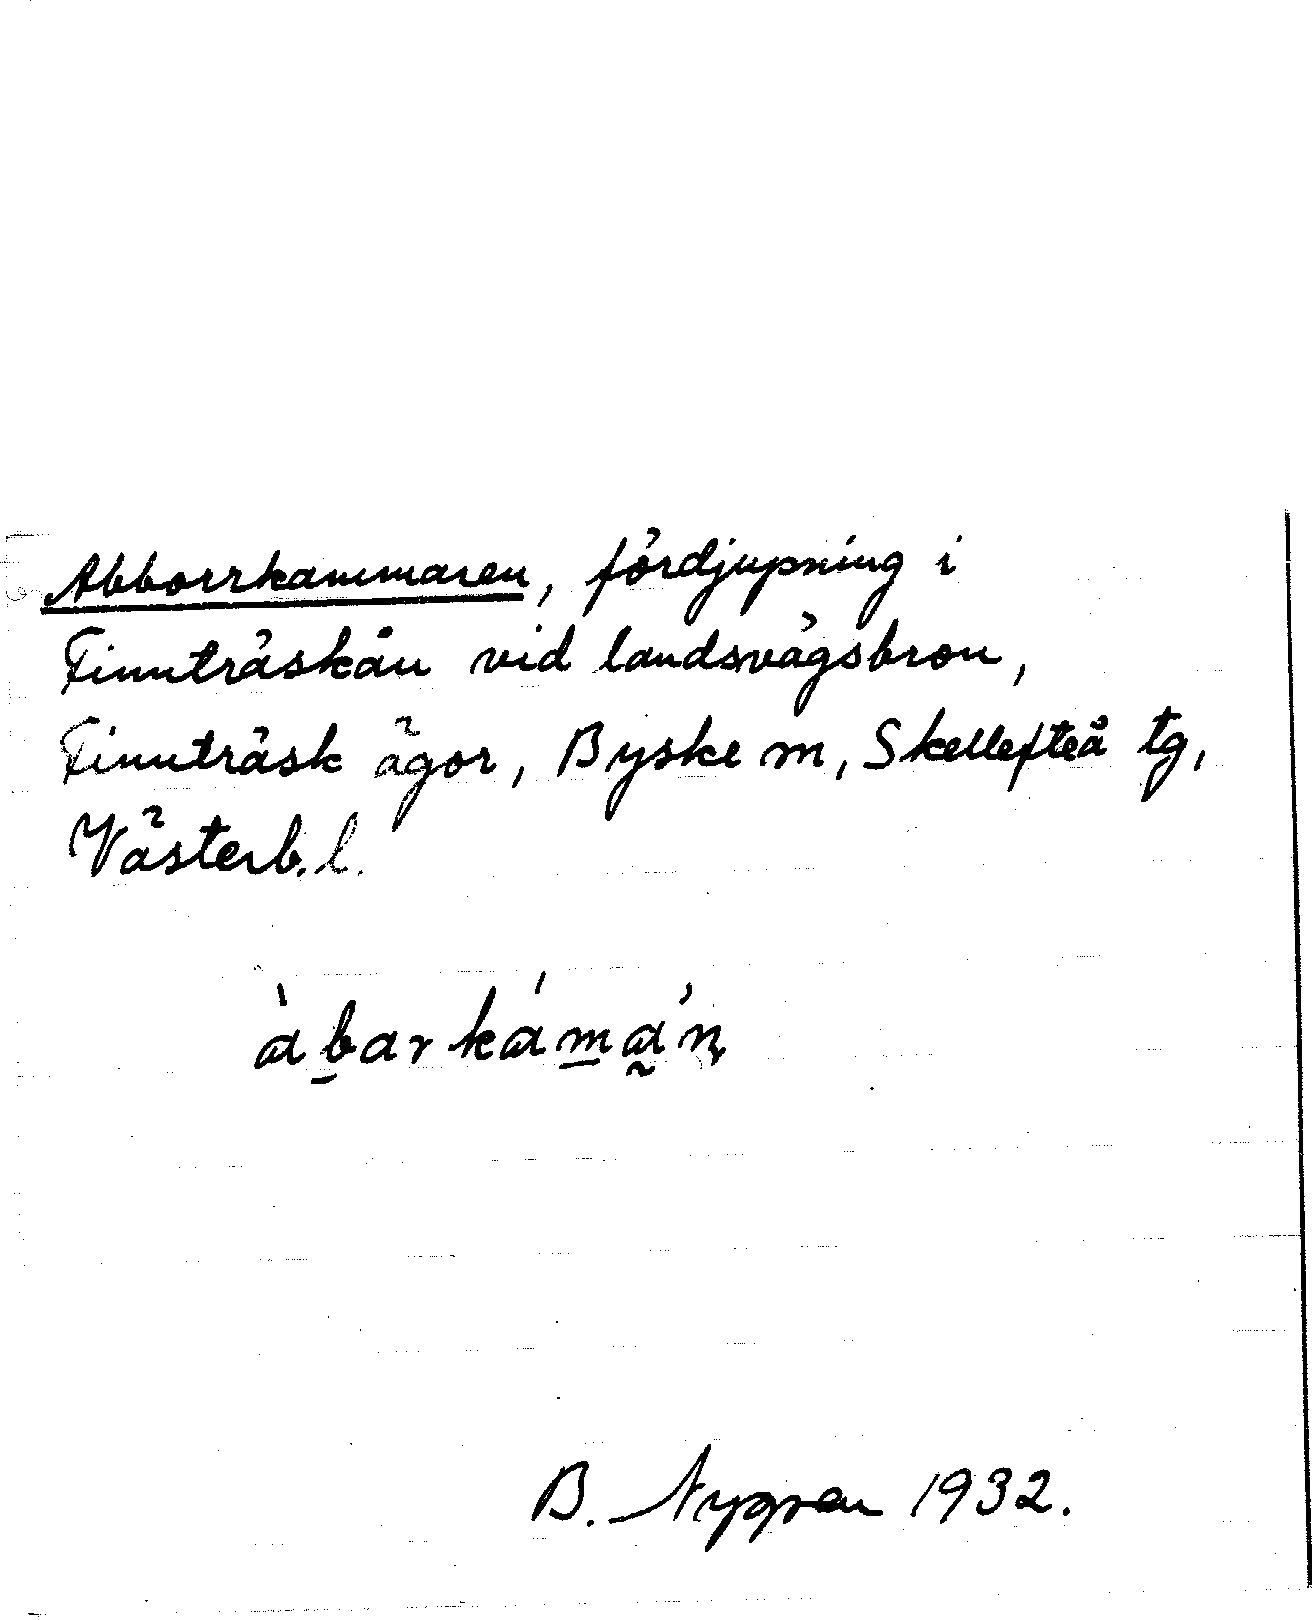 Abborrkammaren, fördjupning i
Finnträskån vid landsvägsbron,
Finnträsk ägor, Byske m, Skellefteå tg,
Västerb. l.
àbarkámán
B. Nygren 1932.